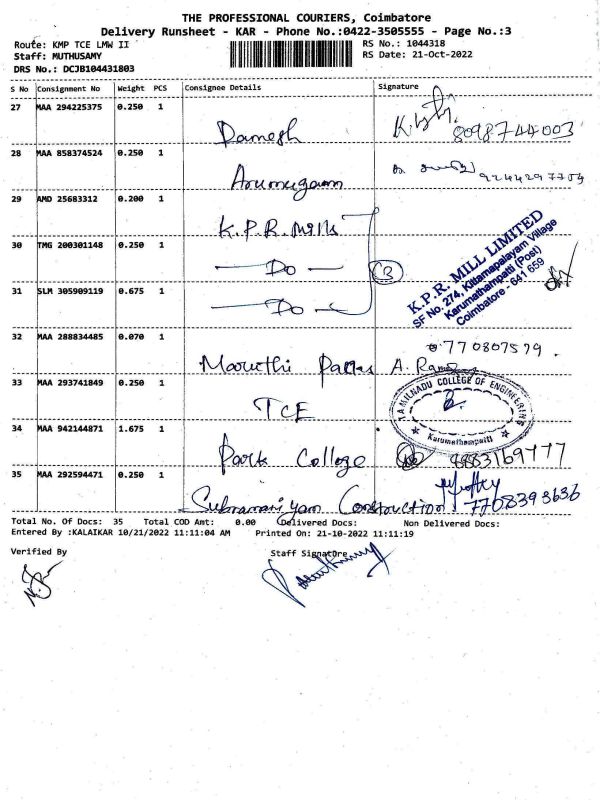 THE PROFESSIONAL COURIERS, Coimbatore
Delivery Runsheet - KAR - Phone No.:0422-3505555 - Page No.:3
Route: KMP TCE LMW II RS No.: 1044318
Staff: MUTHUSAMY RS Date: 21-Oct-2022
DRS No.: DCJB104431803
S No Consignment No Weight PCS Consignee Details Signature
27 MAA 294225375 0.250 1
Ramesh 8098744003
28 MAA 858374524 0.250 1
Arumugam 9244297704
29 AMD 25683312 0.200 1
K.P.R. Mills
30 TMG 200301148 0.250 1
Do
31 SLM 305909119 0.675 1
Do
K.P.R. MILL LIMITED
SF No. 274, Kittampalayam Village
Karumathampatti (Post)
Coimbatore - 641 659
32 MAA 288834485 0.070 1
770807579
Maruthi A.
33 MAA 293741849 0.250 1
TCE
TAMILNADU COLLEGE OF ENGINEERING
Karumathampatti
34 MAA 942144871 1.675 1
Park College 4883169777
35 MAA 292594471 0.250 1
Subramaniyam Construction 7708393636
Total No. Of Docs: 35 Total COD Amt: 0.00 Delivered Docs: Non Delivered Docs:
Entered By :KALAIKAR 10/21/2022 11:11:04 AM Printed On: 21-10-2022 11:11:19
Verified By Staff Signature